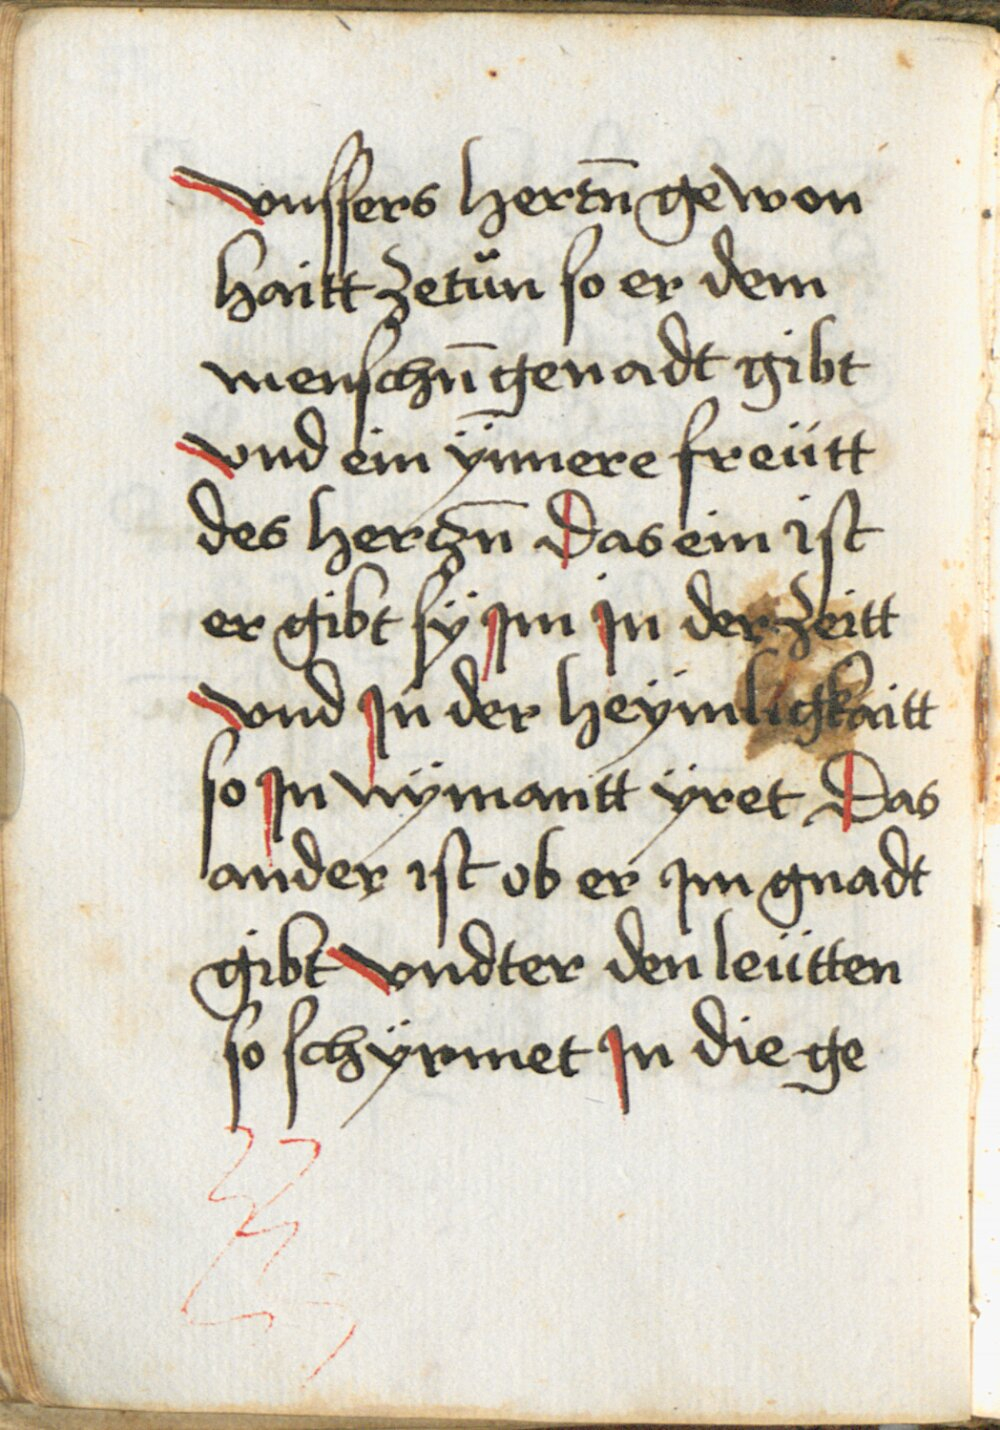 vnssers herrn̄ gewon
haitt zetün so er dem
menschn̄ genadt gibt
vnd ein ÿn̄nere freütt
des herczn̄ Das ein ist
er gibt sÿ jm jn der zeitt
vnd jn der heÿmligkaitt
so jn nÿmantt ÿret Das
ander ist ob er jm gnadt
gibt vndter den leütten
so schÿrmet jn die ge